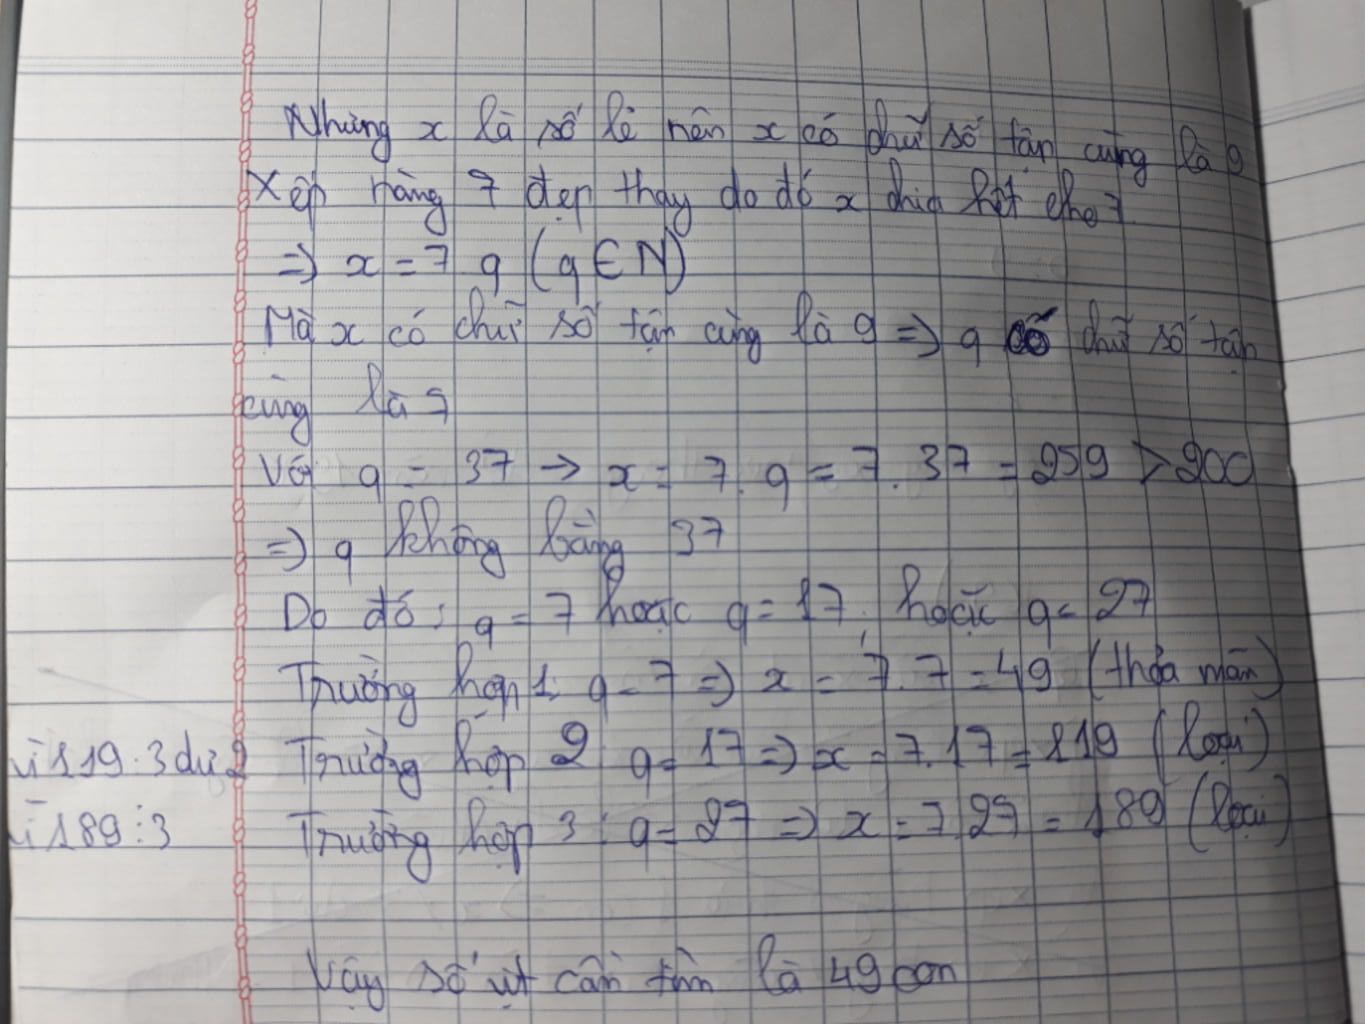 Nhưng x là số lẻ nên x có chữ số tận cùng là 9
Xếp hàng 7 đẹp thay do đó x chia hết cho 7.
=> x = 7 q (q ∈ N)
Mà x có chữ số tận cùng là 9 => q có chữ số tận
cùng là 7
Với q = 37 → x = 7. q = 7. 37 = 259 > 200
=> q không bằng 37
Do đó: q = 7 hoặc q = 17; hoặc q = 27
Trường hợp 1: q = 7 => x = 7. 7 = 49 (thỏa mãn)
vì 119 : 3 dư 2 Trường hợp 2 q = 17 => x = 7.17 = 119 (loại)
vì 189 ⋮ 3 Trường hợp 3 : q = 27 => x = 7.27 = 189 (loại)
Vậy số vịt cần tìm là 49 con